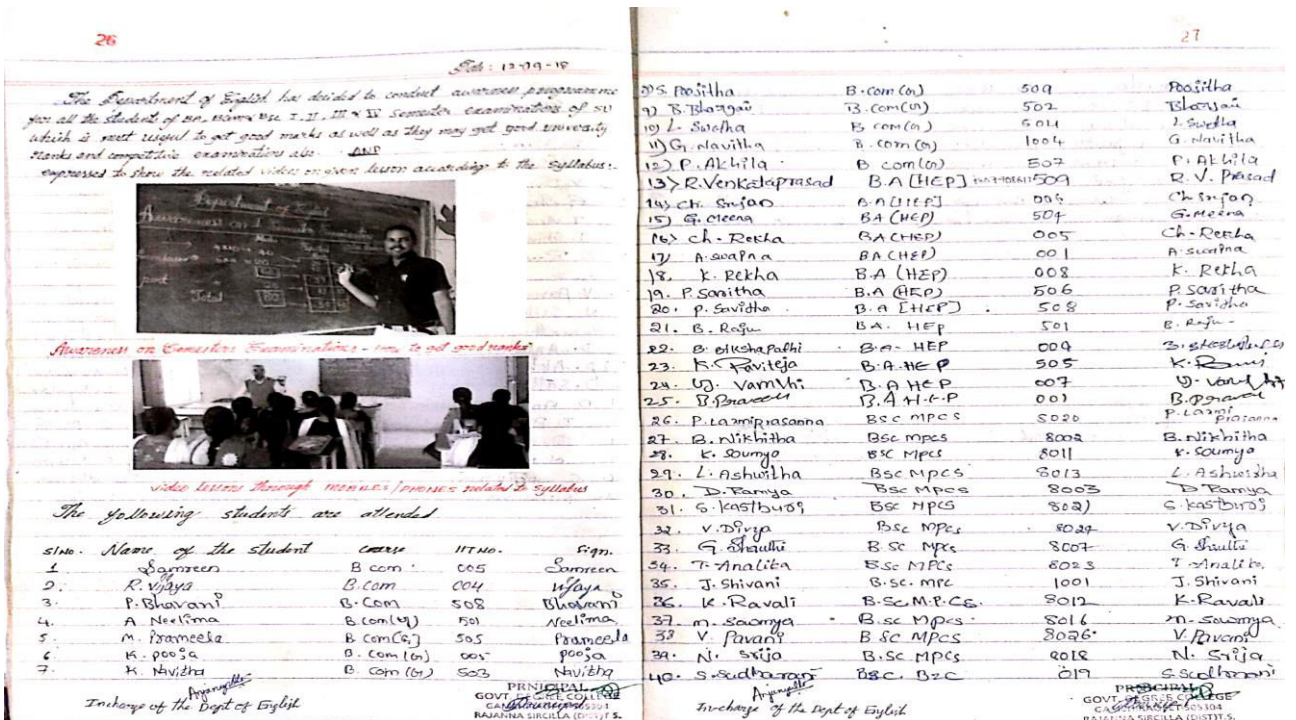 26
Date: 12-09-18
The Department of English has decided to conduct awarness programme
for all the student of BA, BCom & BSc I, II, III & IV Semester examinations of SU
which is most useful to get good marks as well as they may get good university
ranks and competitive examinations also.
expressed to show the related videos on given lesson according to the syllabus.
Department of English
Awareness on I Semester Examinations
Total
Awareness on Semesters Examinations - how to get good ranks
video lessons through MOBILES/PHONES related to syllabus
The following students are attended
Sl No. Name of the student course HT NO. Sign.
1 Samreen B com 005 Samreen
2. R. Vijaya B.com 004 Vijaya
3. P. Bhavani B.Com 508 Bhavani
4. A Neelima B com 501 Neelima
5. M. Prameela B com 505 Prameela
6. K. Pooja B. com (G) 005 Pooja
7. K. Navitha B. com (G) 503 Navitha
Incharge of the Dept of English
PRINCIPAL
GOVT. DEGREE COLLEGE
RAJANNA SIRCILLA (DIST) T.S.
27
S. Poojitha B.com (G) 509 Poojitha
9) B. Bhargavi B.com(G) 502 Bhargavi
10) L. Swetha B com(G) L. Swetha
11) G. Navitha B.com (G) 1004 G. Navitha
12) P. Akhila B com(G) 507 P. Akhila
13) R. Venkataprasad B.A [HEP] 509 R. V. Prasad
14) Ch. Srujan B.A [HEP] Ch Srujan
15) G. Meena BA (HEP) 504 G. Meena
16) Ch. Rekha BA (HEP) 005 Ch. Rekha
17) A. Swapna BA (HEP) 001 A. Swapna
18. K. Rekha B.A (HEP) 008 K. Rekha
19. P. Saritha B.A (HEP) 506 P. Saritha
20. P. Savitha B.A [HEP] 508 P. Savitha
21. B. Raju BA. HEP 501 B. Raju
22. B. Bikshapathi B.A- HEP 009
23. K. Raviteja B.A. HEP 505 K.
24. Vamshi B.A HEP 007
25. B. Praveen B.A H.E.P 001 B. Praveen
26. P. Laxmiprasanna BSC MPCS 8020 P. Laxmi Prasanna
27. B. Nikhitha BSC MPCS 8002 B. Nikhitha
28. K. Soumya BSC MPCS 8011 K. Soumya
29. L. Ashwitha BSC MPCS 8013 L. Ashwitha
30. D. Ramya BSC MPCS 8003 D. Ramya
31. S. Kasthuri BSC MPCS 8021 S. Kasthuri
32. V. Divya BSC MPCS 8024 V. Divya
33. G. Shruthi B.SC MPCS 8007 G. Shruthi
34. T. Analika BSC MPCS 8023
35. J. Shivani B.SC. MPC 1001 J. Shivani
36. K. Ravali B.SC M.P.CS. 8012 K. Ravali
37. M. Sowmya B.SC MPCS 8016 M. Sowmya
38 V. Pavani B SC MPCS 8026 V. Pavani
39. N. Srija B.SC MPCS 8018 N. Srija
40. S. Sudharani BSC. BZC 019 S Sudharani
Incharge of the Dept of English
PRINCIPAL
GOVT. DEGREE COLLEGE
RAJANNA SIRCILLA (DIST) T.S.